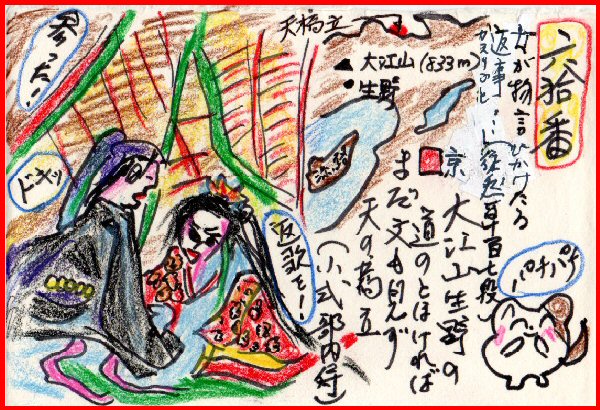 六拾番
女が物言ひかけたる
返事
徒然草百七段
大江山生野の
道のとほければ
まだ文も見ず
天の橋立
(小式部内侍)
天橋立
▲大江山(833m)
●生野
京
参った!
ドキッ
返歌を!
パチパチ